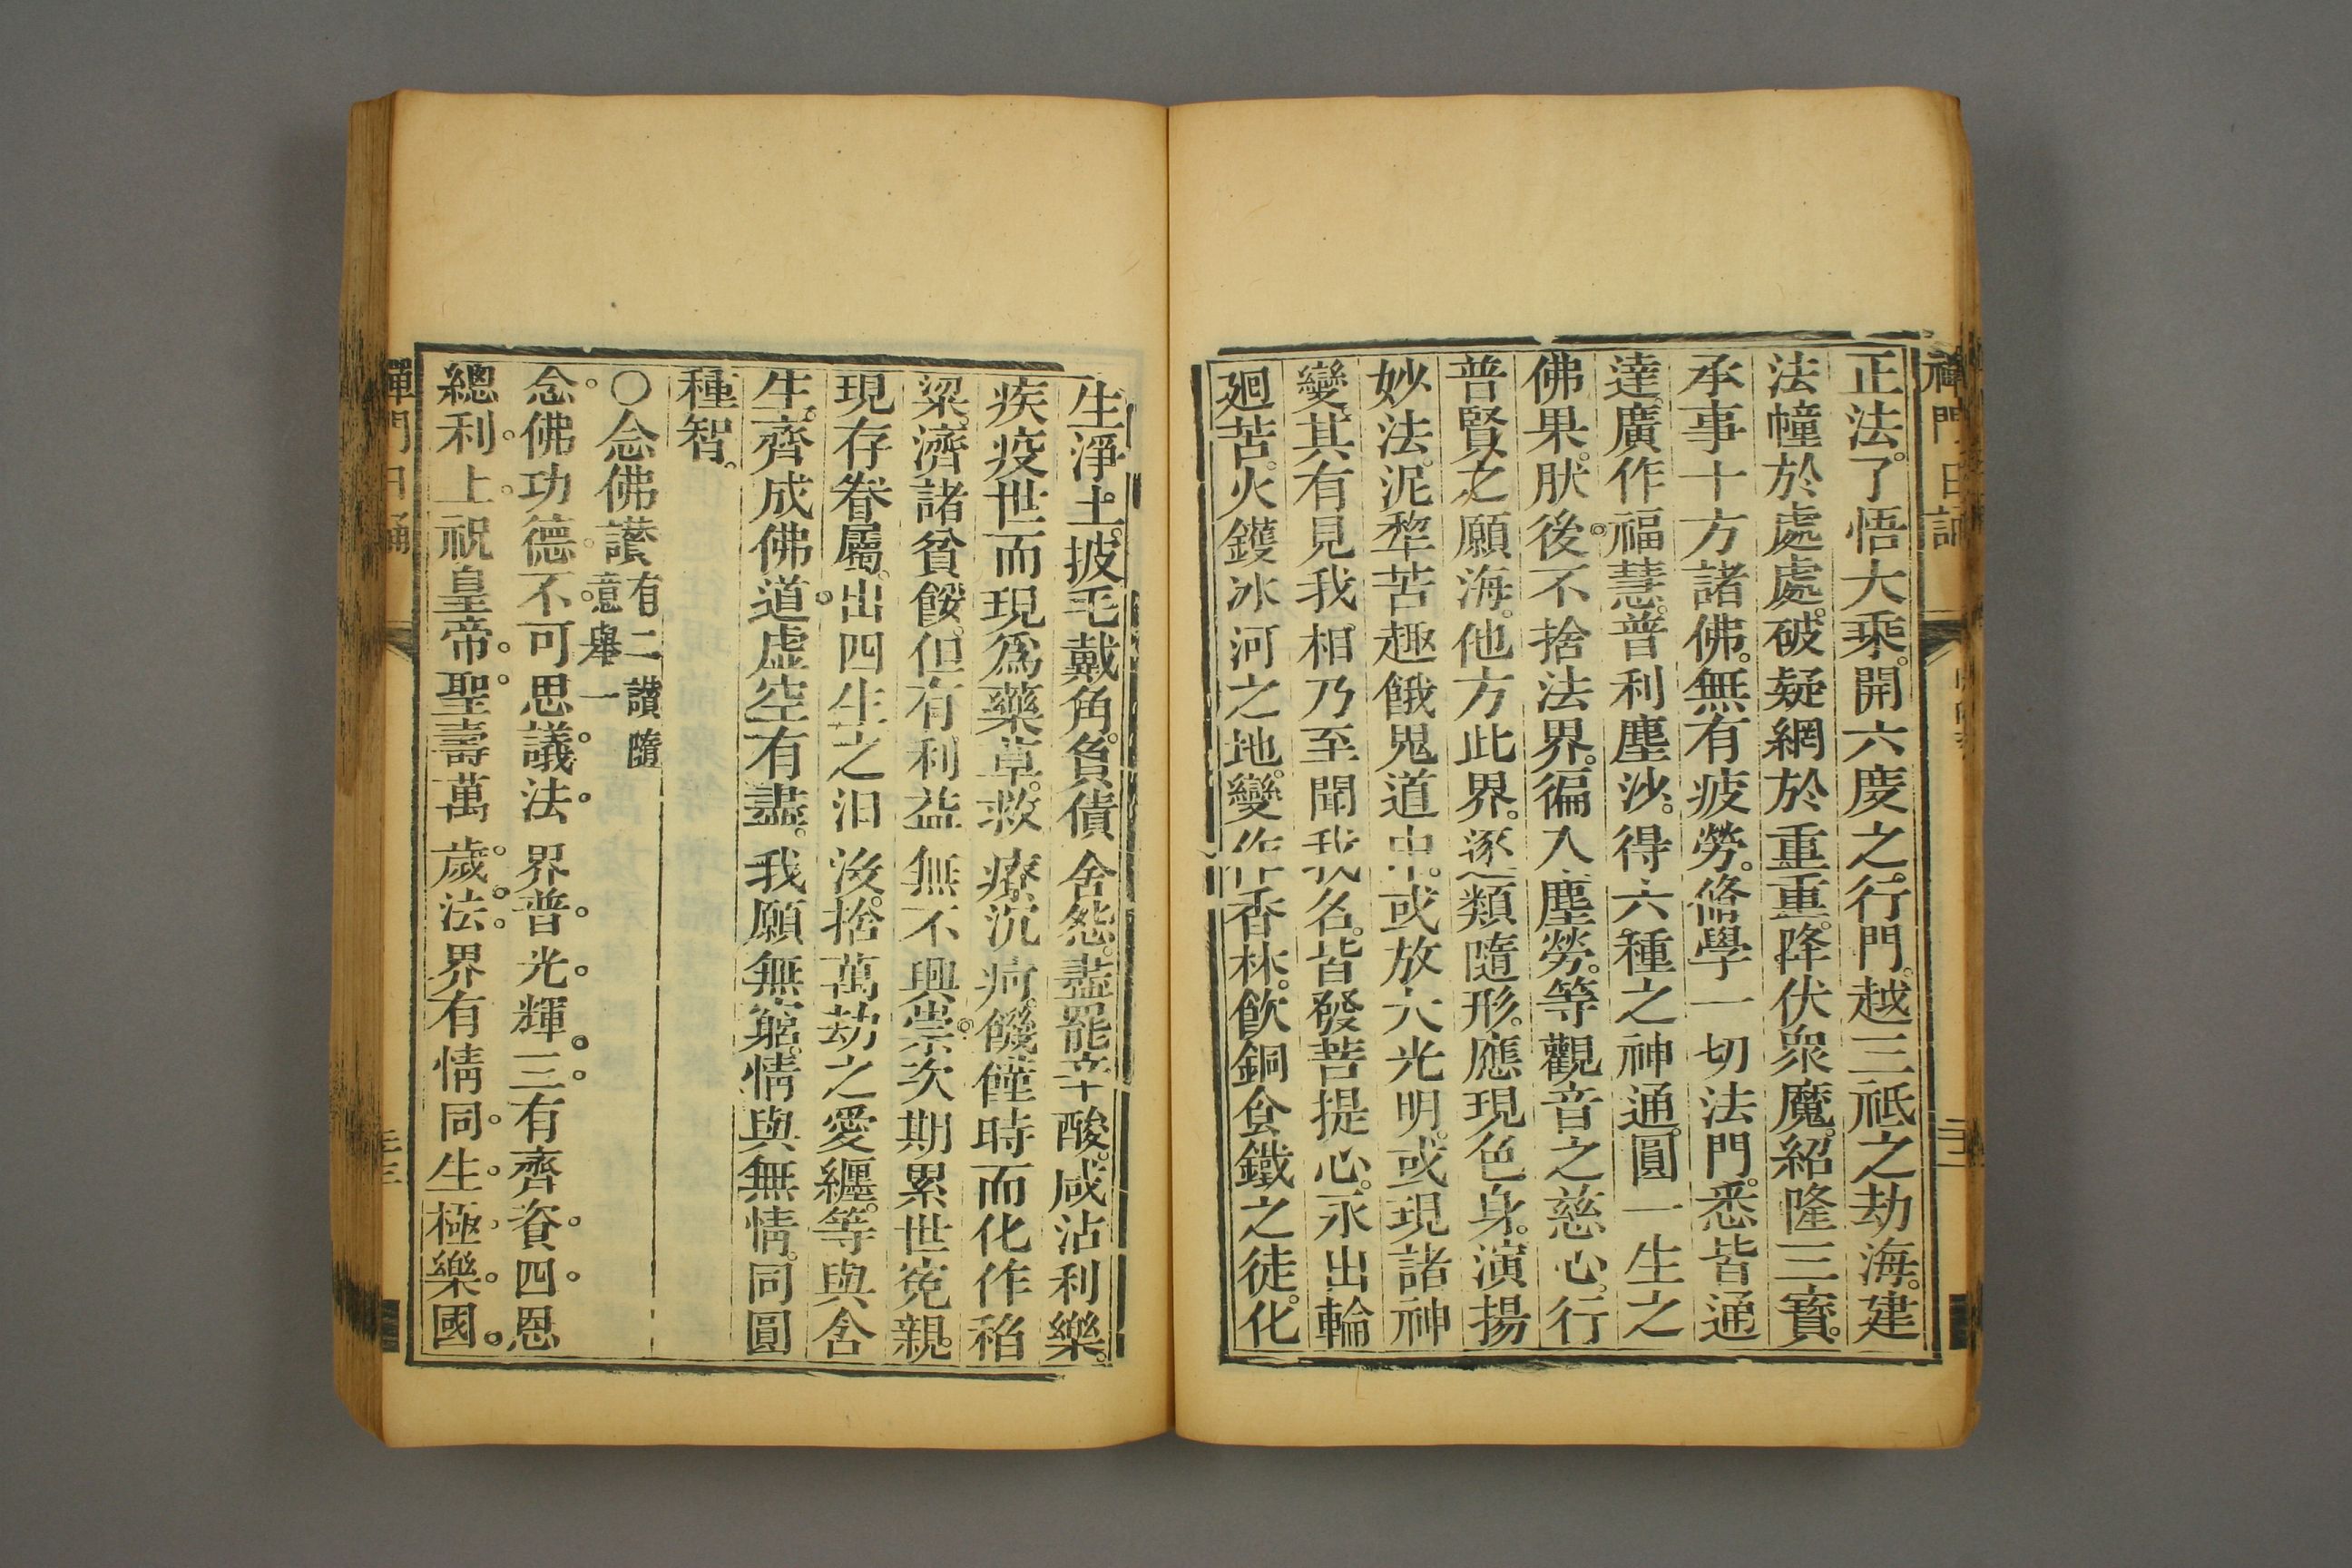 禪門日誦
正法。了悟大乘。開六度之行門。越三祇之劫海。建
法幢於處處。破疑網於重重。降伏衆魔。紹隆三寶。
承事十方諸佛。無有疲勞。修學一切法門。悉皆通
達。廣作福慧。普利塵沙。得六種之神通。圓一生之
佛果。肰後不捨法界。徧入塵勞。等觀音之慈心。行
普賢之願海。他方此界。逐類隨形。應現色身。演揚
妙法。泥犂苦趣餓鬼道中。或放大光明。或現諸神
變。其有見我相。乃至聞我名。皆發菩提心。永出輪
廻苦。火鑊冰河之地。變作香林。飲銅食鐵之徒。化
生淨土。披毛戴角。負債含怨。盡罷辛酸。咸沾利樂。
疾疫世而現爲藥草。救療沉疴。饑饉時而化作稻
粱。濟諸貧餒。但有利益。無不興崇。次期累世寃親。
現存眷屬。出四生之汨沒。捨萬劫之愛纏。等與含
生。齊成佛道。虛空有盡。我願無窮。情與無情。同圓
種智。
○念佛讚 有二讚隨意舉一
念佛功德不可思議法界普光輝三有齊資四恩
總利上祝皇帝聖壽萬歲法界有情同生極樂國
禪門日誦
三三